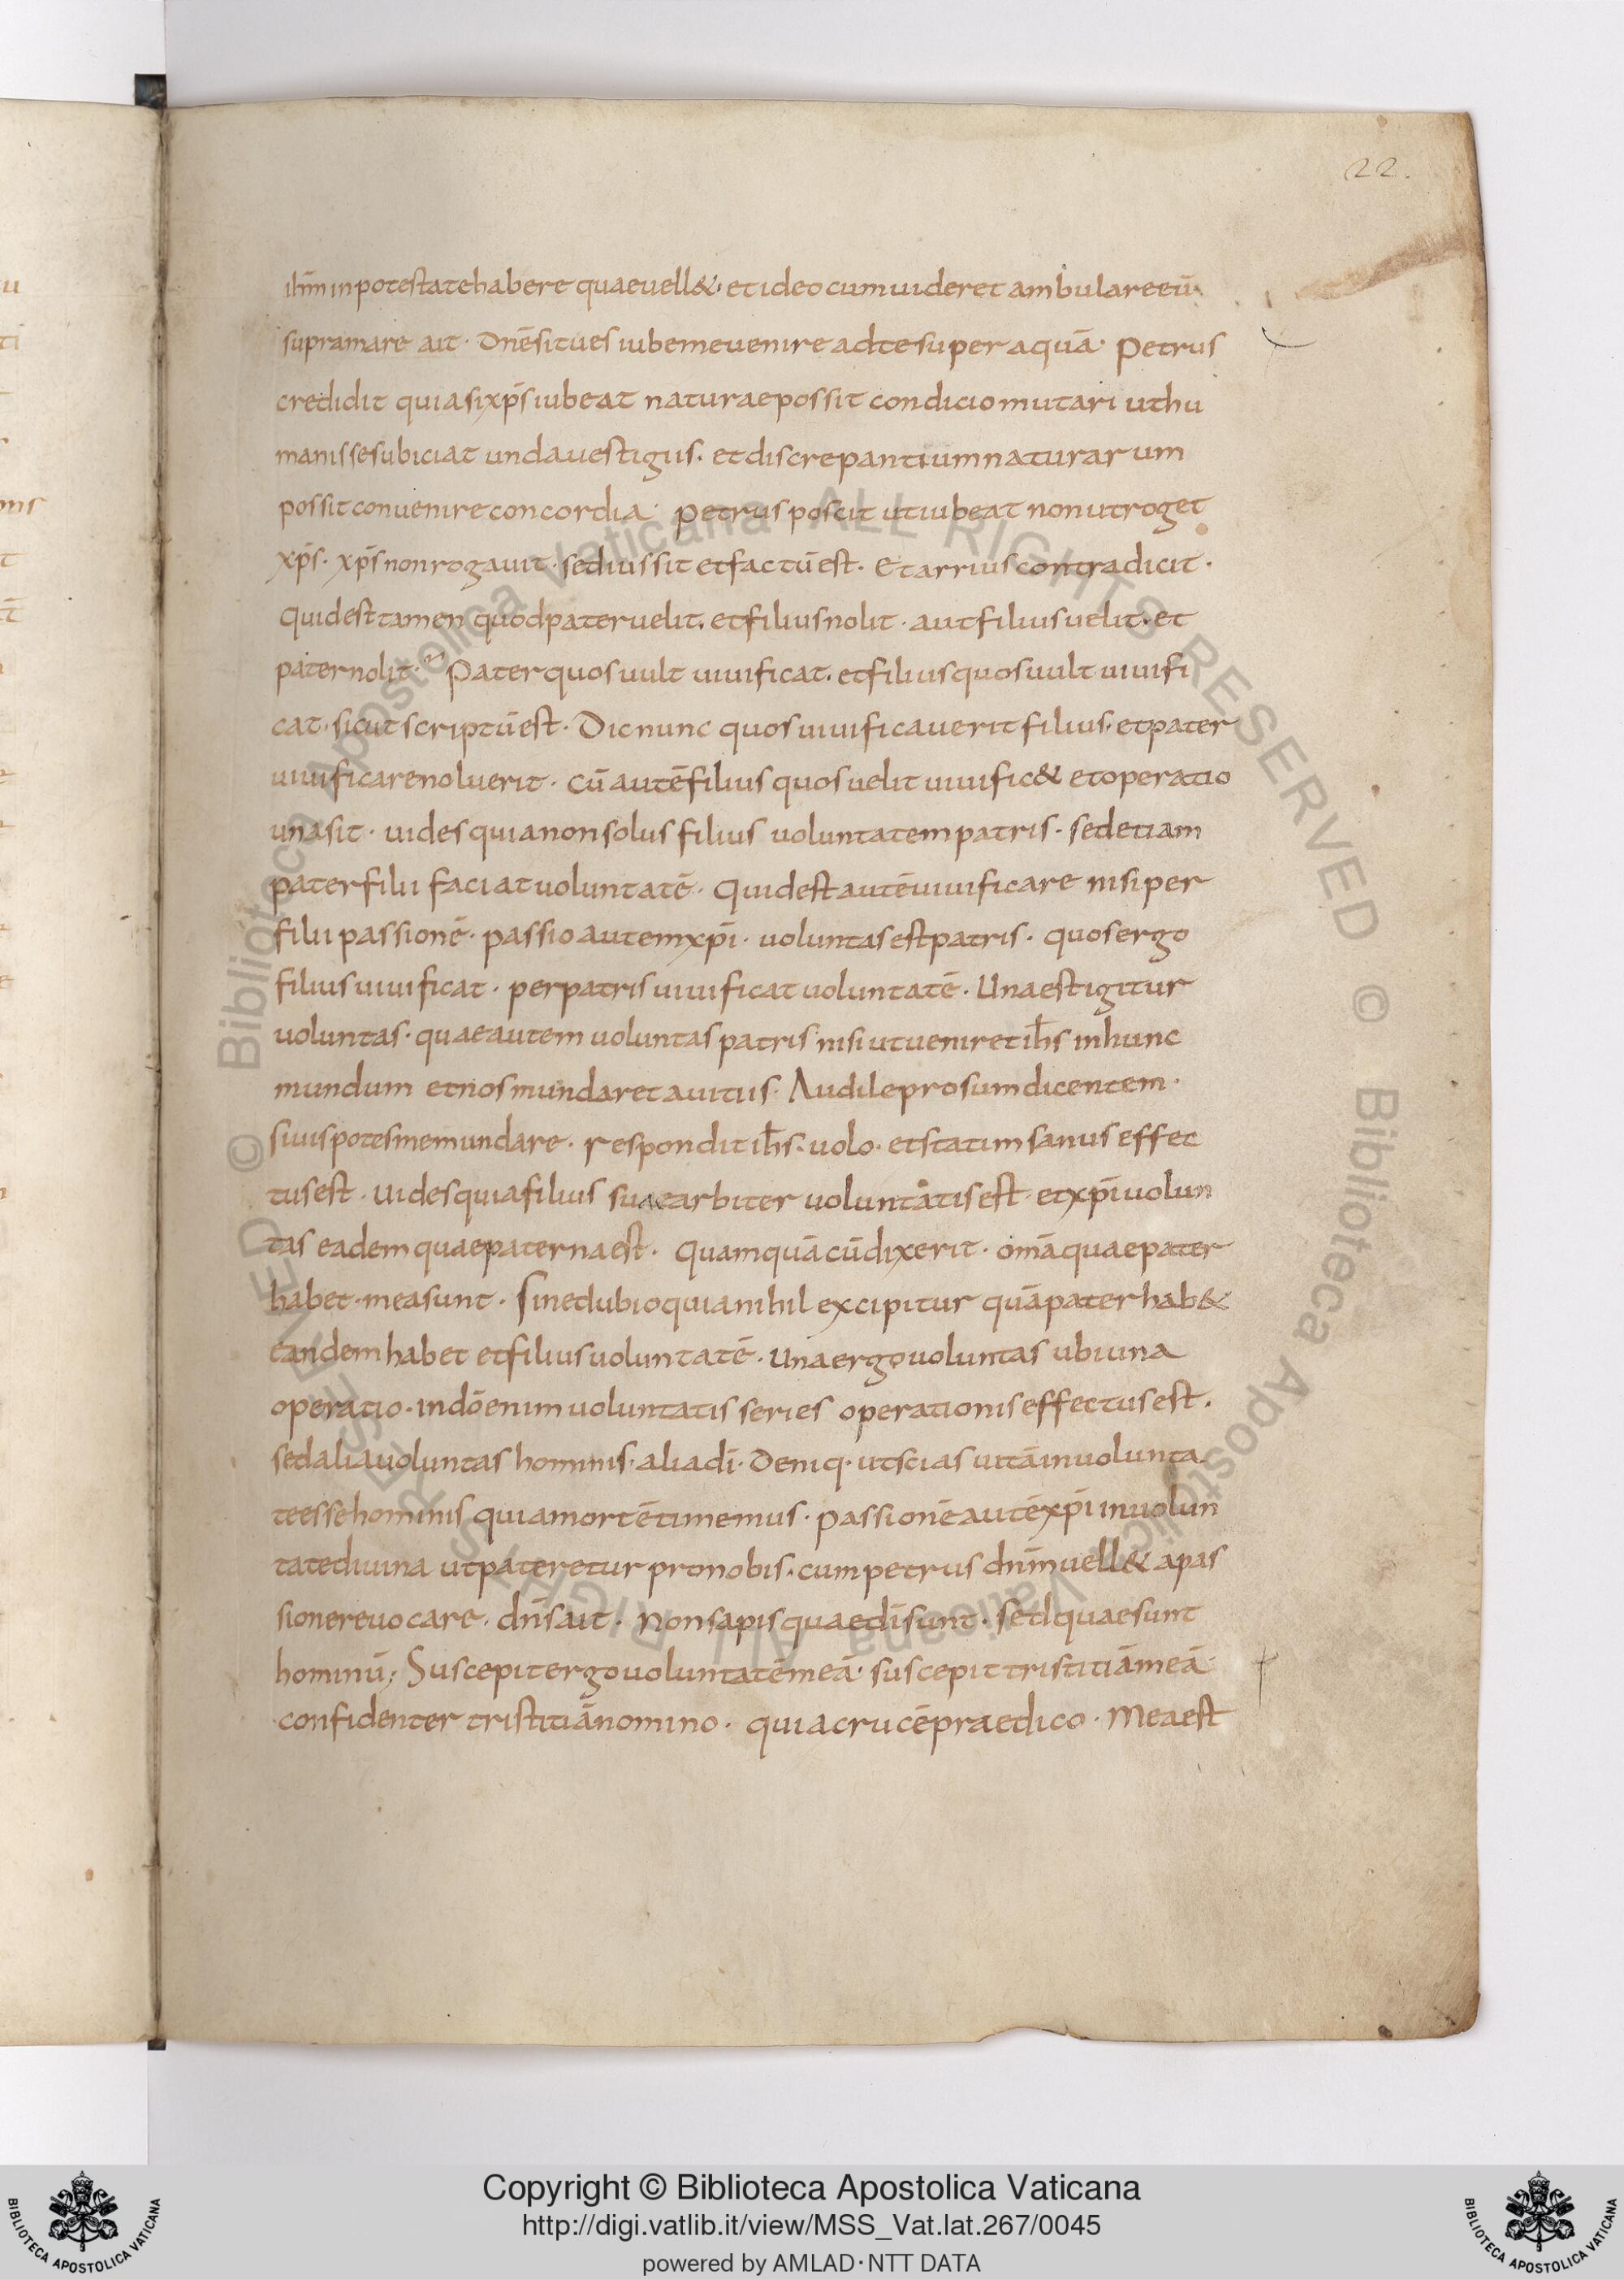 22.
ihm̄ in potestate habere quae uell&· et ideo cum uideret ambulare eū
supra mare ait· Dnē si tu es iube me uenire ad te super aquā· Petrus
credidit quia si xp̄s iubeat naturae possit condicio mutari ut hu
manis se subiciat unda uestigiis· et discrepantium naturarum
possit conuenire concordia· Petrus poscit ut iubeat non ut roget
xp̄s· xp̄s non rogauit· sed iussit et factū est· Et arrius contradicit·
Quid est tamen quod pater uelit· et filius nolit· aut filius uelit· et
pater nolit· Pater quos uult uiuificat· et filius quos uult uiuifi
cat· sicut scriptū est· Dic nunc quos uiuificauerit filius· et pater
uiuificare noluerit· Cū autē filius quos uelit uiuific& et operatio
una sit· uides quia non solus filius uoluntatem patris· sed etiam
pater filii faciat uoluntatē· Quid est autē uiuificare nisi per
filii passionē· passio autem xp̄i· uoluntas est patris· quos ergo
filius uiuificat· per patris uiuificat uoluntatē· Una est igitur
uoluntas· quae autem uoluntas patris nisi ut ueniret ih̄s in hunc
mundum et nos mundaret a uitiis· Audi leprosum dicentem·
si uis potes me mundare· respondit ih̄s· uolo· et statim sanus effec
tus est· Uides quia filius suae arbiter uoluntatis est· et xp̄i uolun
tas eadem quae paterna est· Quamquā cū dixerit· omā quae pater
habet· mea sunt· Sine dubio quia nihil excipitur quā pater hab&
eandem habet et filius uoluntatē· Una ergo uoluntas ubi una
operatio· in dō enim uoluntatis series operationis effectus est·
sed alia uoluntas hominis· alia dī· Deniq· ut scias uitā in uolunta
te esse hominis quia mortē timemus· passionē autē xp̄i in uolun
tate diuina ut pateretur pro nobis· cum petrus dnm̄ uell& a pas
sione reuocare· dn̄s ait· Non sapis quae dī sunt· sed quae sunt
hominū; Suscepit ergo uoluntatē meā· suscepit tristitiā meā·
confidenter tristitiā nomino· quia crucē praedico· Mea est
© Biblioteca Apostolica Vaticana ALL RIGHTS RESERVED © Biblioteca Apostolica Vaticana ALL RIGHTS RESERVED
Copyright © Biblioteca Apostolica Vaticana
http://digi.vatlib.it/view/MSS_Vat.lat.267/0045
powered by AMLAD·NTT DATA
BIBLIOTECA APOSTOLICA VATICANA
BIBLIOTECA APOSTOLICA VATICANA